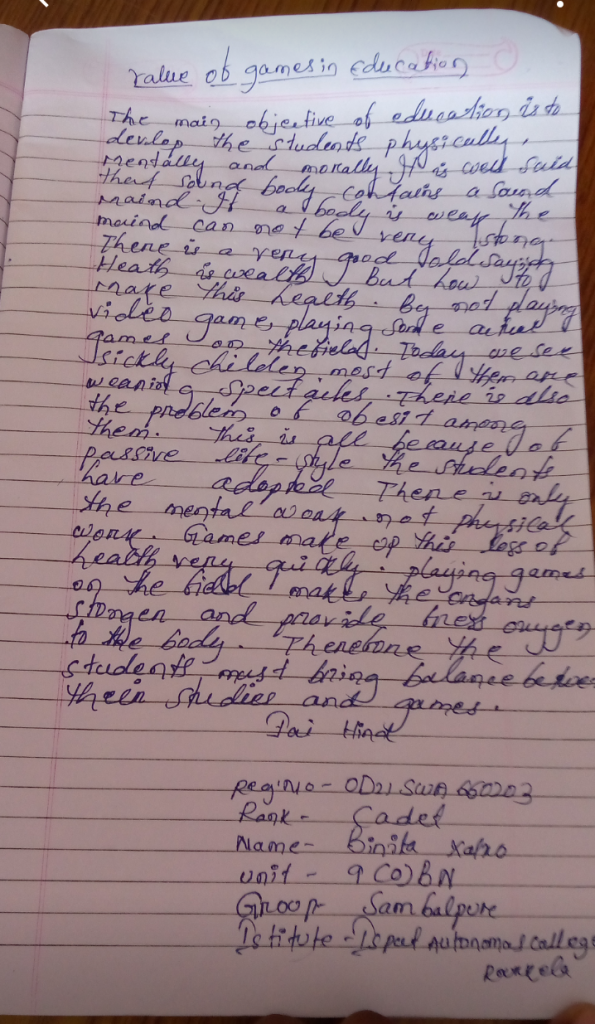 value of games in Education
The main objective of education is to
develop the students physically,
mentally and morally It is well said
that sound body contains a sound
maind. If a body is weak the
maind can not be very stong.
There is a very good old saying
Heath is wealth. But how to
make this health. By not playing
video game, playing some actual
games on the field. Today we see
sickly children most of them are
weaning spectacles. There is also
the problem of obesit among
them. This is all because of
passive life-style the students
have adopted There is only
the mental work. not physical
work. Games make up this loss of
health very quickly. playing games
on the field makes the organs
stongen and provide fresh oxygen
to the body. Therefore the
students must bring balance between
their studies and games.
Jai Hind
Reg No - OD21SWA660203
Rank - Cadet
Name - Binita Xalxo
unit - 9(O)BN
Group Sambalpure
Istitute - Ispat Autonomas college